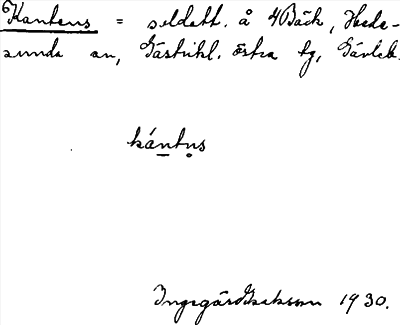 6Kantens = soldatt. å 4Bäck, Hede-
sunda sn, Gästrikl. östra tg, Gävleb.
kántns
Ingegärd Isaksson 1930.